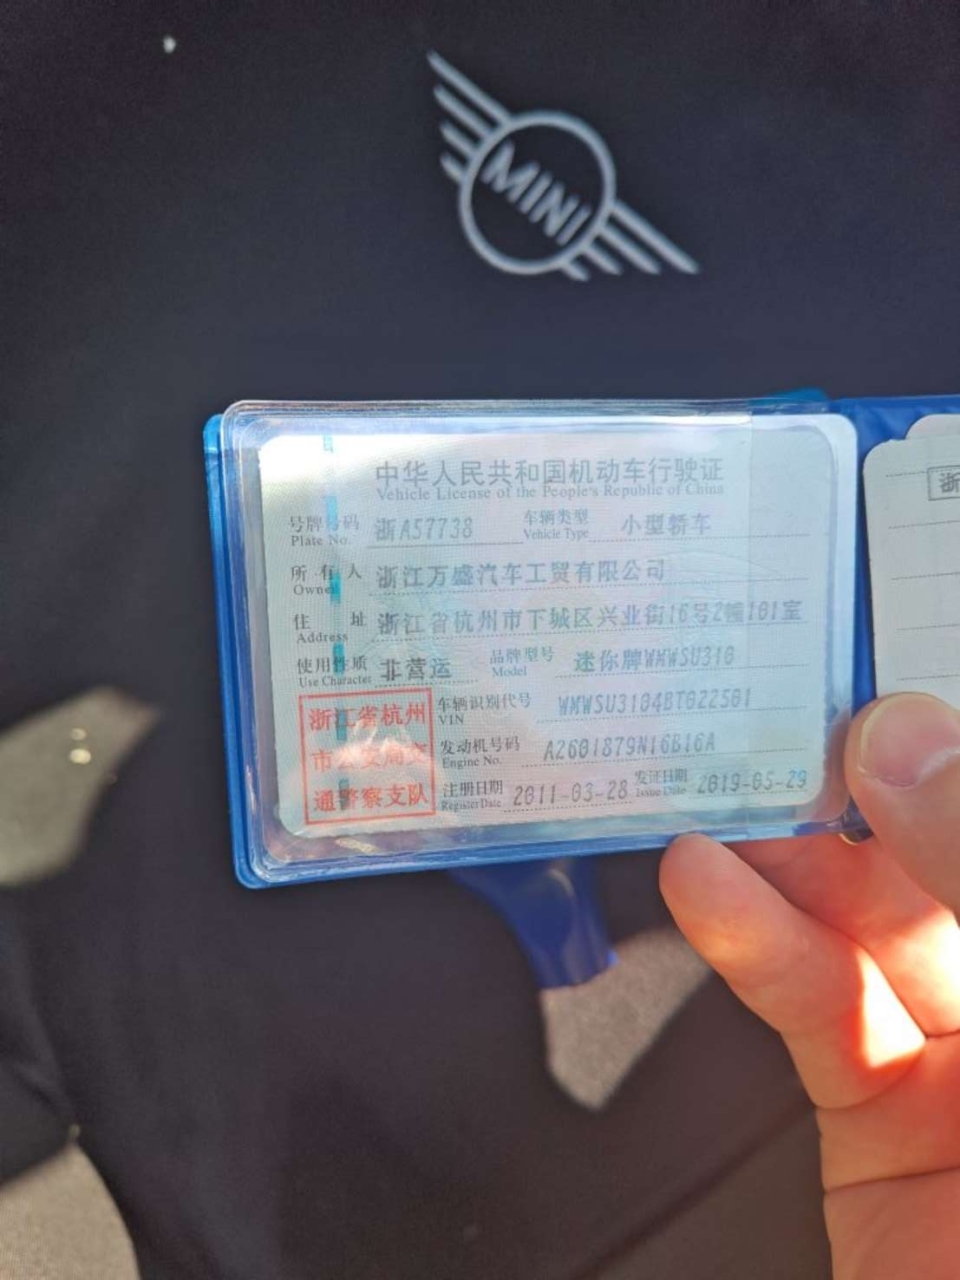 MINI
中华人民共和国机动车行驶证
Vehicle License of the People's Republic of China
号牌号码 浙A57738 车辆类型 小型轿车
Plate No. Vehicle Type
所有人 浙江万盛汽车工贸有限公司
Owner
住址 浙江省杭州市下城区兴业街16号2幢101室
Address
使用性质 非营运 品牌型号 迷你牌WMWSU310
Use Character Model
浙江省杭州 车辆识别代号 WMWSU3104BT022501
VIN
市公安局交 发动机号码 A2601879N16B16A
Engine No.
通警察支队 注册日期 2011-03-28 发证日期 2019-05-29
Register Date Issue Date
浙